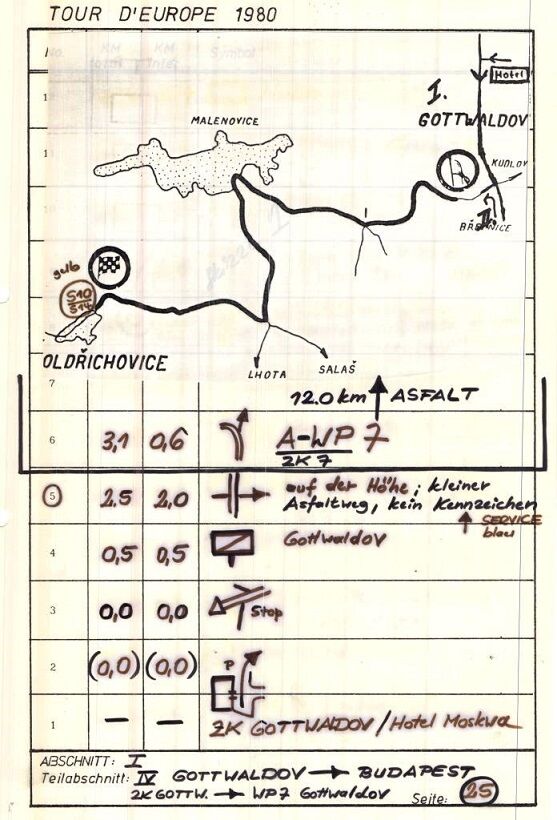 TOUR D'EUROPE 1980
Hotel
I.
GOTTWALDOV
MALENOVICE
KUDLOV
BŘEZNICE
II.
gelb
S10
S14
OLDŘICHOVICE
LHOTA
SALAŠ
7 12.0 km ASFALT
6 3,1 0,6 A-WP 7
ZK 7
5 2.5 2,0 auf der Höhe; kleiner
Asfaltweg, kein Kennzeichen
SERVICE
blau
4 0,5 0,5 Gottwaldov
3 0,0 0,0 Stop
2 (0,0) (0,0) P
1 — — ZK GOTTWALDOV / Hotel Moskwa
ABSCHNITT: I
Teilabschnitt: IV GOTTWALDOV → BUDAPEST
ZK GOTTW. → WP7 Gottwaldov
Seite: 25